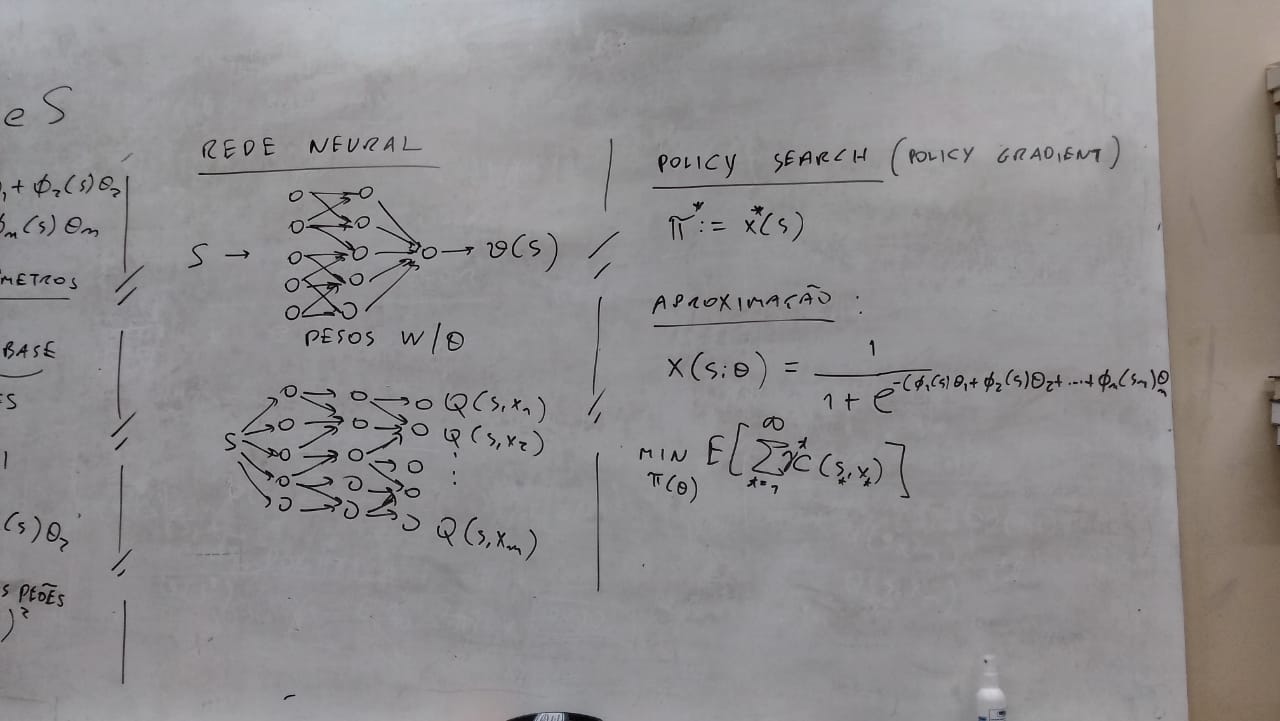 es
1 + φ2(s)θ2
φn(s)θn
METROS
BASE
ES
1
(s)θ2
S PEÕES
)²
REDE NEURAL
S → → v(s)
PESOS W/θ
S
Q(s,x1)
Q(s,x2)
⋮
Q(s,xm)
POLICY SEARCH (POLICY GRADIENT)
π* := x*(s)
APROXIMAÇÃO :
x(s;θ) = 1 / 1 + e^-(φ1(s)θ1+φ2(s)θ2+...+φn(sn)θn
MIN E[∑ γ^t C(st,xt)]
π(θ) t=1 ∞